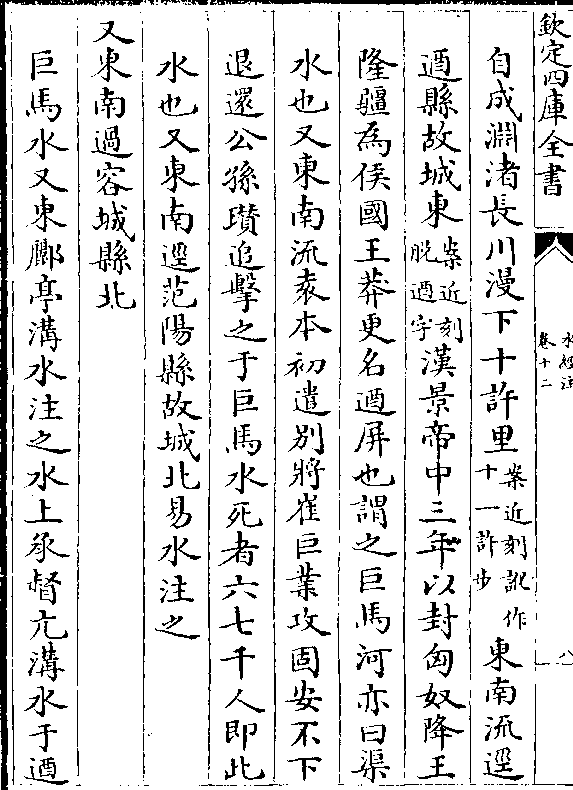 欽定四庫全書
水經注
卷十二
八
自成淵渚長川漫下十許里案近刻訛作十一許步東南流逕
遒縣故城東案近刻脫遒字漢景帝中三年以封匈奴降王
隆疆為侯國王莽更名遒屏也謂之巨馬河亦曰渠
水也又東南流袁本初遣别將崔巨業攻固安不下
退還公孫瓚追擊之于巨馬水死者六七千人即此
水也又東南逕范陽縣故城北易水注之
又東南過容城縣北
巨馬水又東酈亭溝水注之水上承督亢溝水于遒